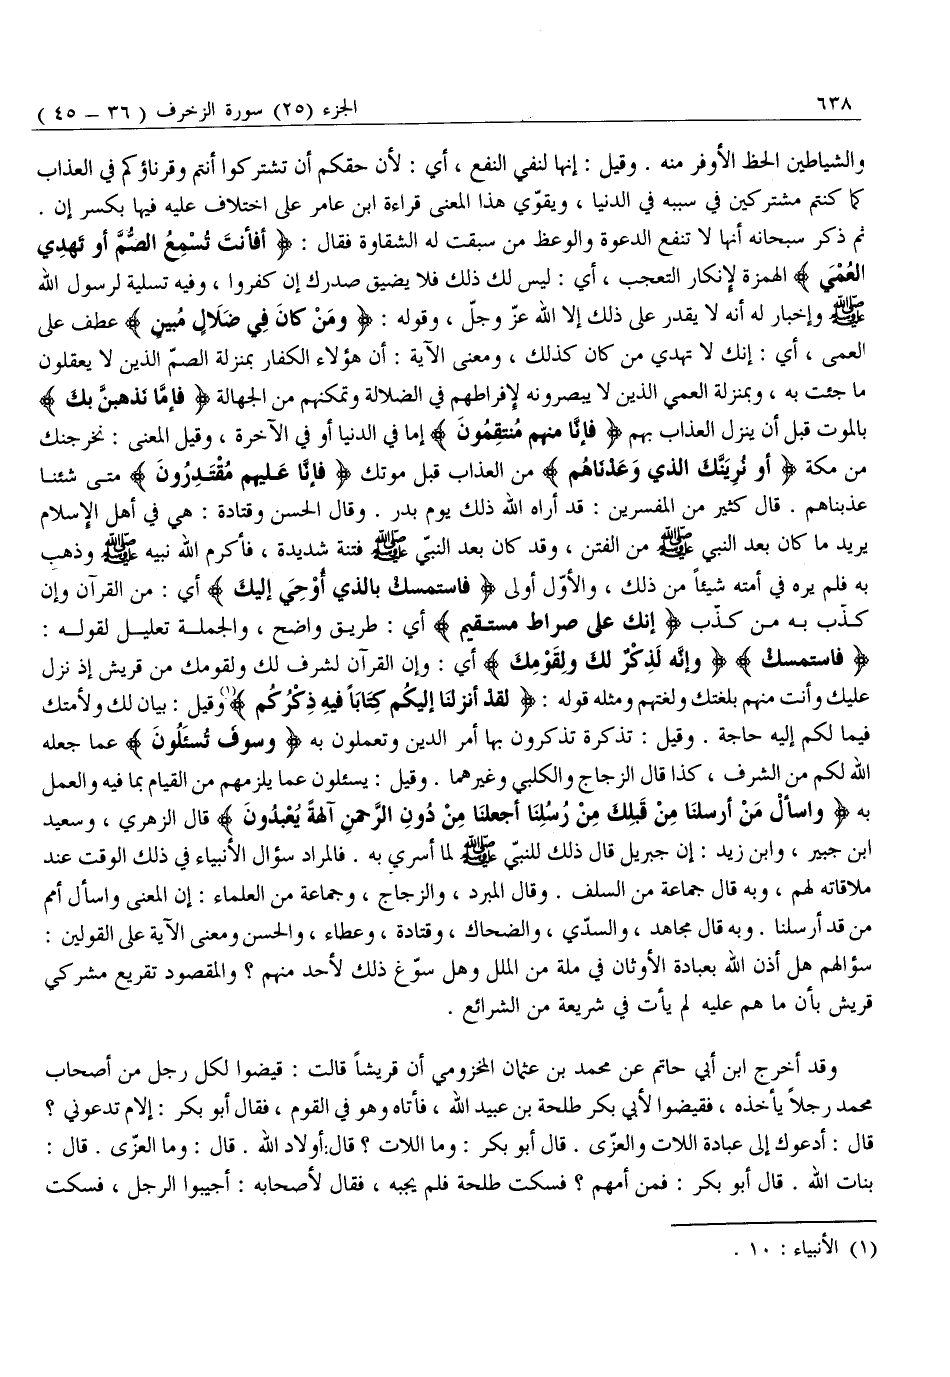 ٦٣٨
الجزء (٢٥) سورة الزخرف ( ٣٦ – ٤٥ )
والشياطين الحظ الأوفر منه . وقيل : إنها لنفي النفع ، أي : لأن حقكم أن تشتركوا أنتم وقرناؤكم في العذاب
كما كنتم مشتركين في سببه في الدنيا ، ويقوّي هذا المعنى قراءة ابن عامر على اختلاف عليه فيها بكسر إن .
ثم ذكر سبحانه أنها لا تنفع الدعوة والوعظ من سبقت له الشقاوة فقال : ﴿ أفأنتَ تُسْمِعُ الصُّمَّ أو تَهدِي
العُمْيَ ﴾ الهمزة لإنكار التعجب ، أي : ليس لك ذلك فلا يضيق صدرك إن كفروا ، وفيه تسلية لرسول الله
ﷺ وإخبار له أنه لا يقدر على ذلك إلا الله عزّ وجلّ ، وقوله : ﴿ ومَنْ كانَ فِي ضَلَالٍ مُبينٍ ﴾ عطف على
العمى ، أي : إنك لا تهدي من كان كذلك ، ومعنى الآية : أن هؤلاء الكفار بمنزلة الصمّ الذين لا يعقلون
ما جئت به ، وبمنزلة العمي الذين لا يبصرونه لإفراطهم في الضلالة وتمكنهم من الجهالة ﴿ فإمَّا نَذهبنَّ بكَ ﴾
بالموت قبل أن ينزل العذاب بهم ﴿ فإنَّا منهم مُنتقِمُونَ ﴾ إما في الدنيا أو في الآخرة ، وقيل المعنى : نخرجنك
من مكة ﴿ أو نُرِيَنَّكَ الذي وَعَدْنَاهُم ﴾ من العذاب قبل موتك ﴿ فإنَّا عَليهم مُقْتَدِرُونَ ﴾ متى شئنا
عذبناهم . قال كثير من المفسرين : قد أراه الله ذلك يوم بدر . وقال الحسن وقتادة : هي في أهل الإسلام
يريد ما كان بعد النبي ﷺ من الفتن ، وقد كان بعد النبيّ ﷺ فتنة شديدة ، فأكرم الله نبيه ﷺ وذهب
به فلم يره في أمته شيئاً من ذلك ، والأوّل أولى ﴿ فاستمسكْ بالذي أُوْحِيَ إليكَ ﴾ أي : من القرآن وإن
كذّب به من كذّب ﴿ إنكَ على صراط مستقيم ﴾ أي : طريق واضح ، والجملة تعليل لقوله :
﴿ فاستمسكْ ﴾ ﴿ وإنَّه لَذِكْرٌ لكَ ولِقَوْمِكَ ﴾ أي : وإن القرآن لشرف لك ولقومك من قريش إذ نزل
عليك وأنت منهم بلغتك ولغتهم ومثله قوله : ﴿ لقدْ أنزلنَا إليكُم كِتَاباً فيهِ ذِكْرُكُم ﴾(١) وقيل : بيان لك ولأمتك
فيما لكم إليه حاجة . وقيل : تذكرة تذكرون بها أمر الدين وتعملون به ﴿ وسوفَ تُسئَلُونَ ﴾ عما جعله
الله لكم من الشرف ، كذا قال الزجاج والكلبي وغيرهما . وقيل : يسئلون عما يلزمهم من القيام بما فيه والعمل
به ﴿ واسألْ مَنْ أرسلنَا مِنْ قَبلِكَ مِنْ رُسُلِنَا أجعلنَا مِنْ دُونِ الرَّحمنِ آلهةً يُعْبدُونَ ﴾ قال الزهري ، وسعيد
ابن جبير ، وابن زيد : إن جبريل قال ذلك للنبيّ ﷺ لما أسري به . فالمراد سؤال الأنبياء في ذلك الوقت عند
ملاقاته لهم ، وبه قال جماعة من السلف . وقال المبرد ، والزجاج ، وجماعة من العلماء : إن المعنى واسأل أمم
من قد أرسلنا . وبه قال مجاهد ، والسدّي ، والضحاك ، وقتادة ، وعطاء ، والحسن ومعنى الآية على القولين :
سؤالهم هل أذن الله بعبادة الأوثان في ملة من الملل وهل سوّغ ذلك لأحد منهم ؟ والمقصود تقريع مشركي
قريش بأن ما هم عليه لم يأت في شريعة من الشرائع .
وقد أخرج ابن أبي حاتم عن محمد بن عثمان المخزومي أن قريشاً قالت : قيضوا لكل رجل من أصحاب
محمد رجلاً يأخذه ، فقيضوا لأبي بكر طلحة بن عبيد الله ، فأتاه وهو في القوم ، فقال أبو بكر : إلام تدعوني ؟
قال : أدعوك إلى عبادة اللات والعزّى . قال أبو بكر : وما اللات ؟ قال:أولاد الله . قال : وما العزّى . قال :
بنات الله . قال أبو بكر : فمن أمهم ؟ فسكت طلحة فلم يجبه ، فقال لأصحابه : أجيبوا الرجل ، فسكت
(١) الأنبياء : ١٠ .